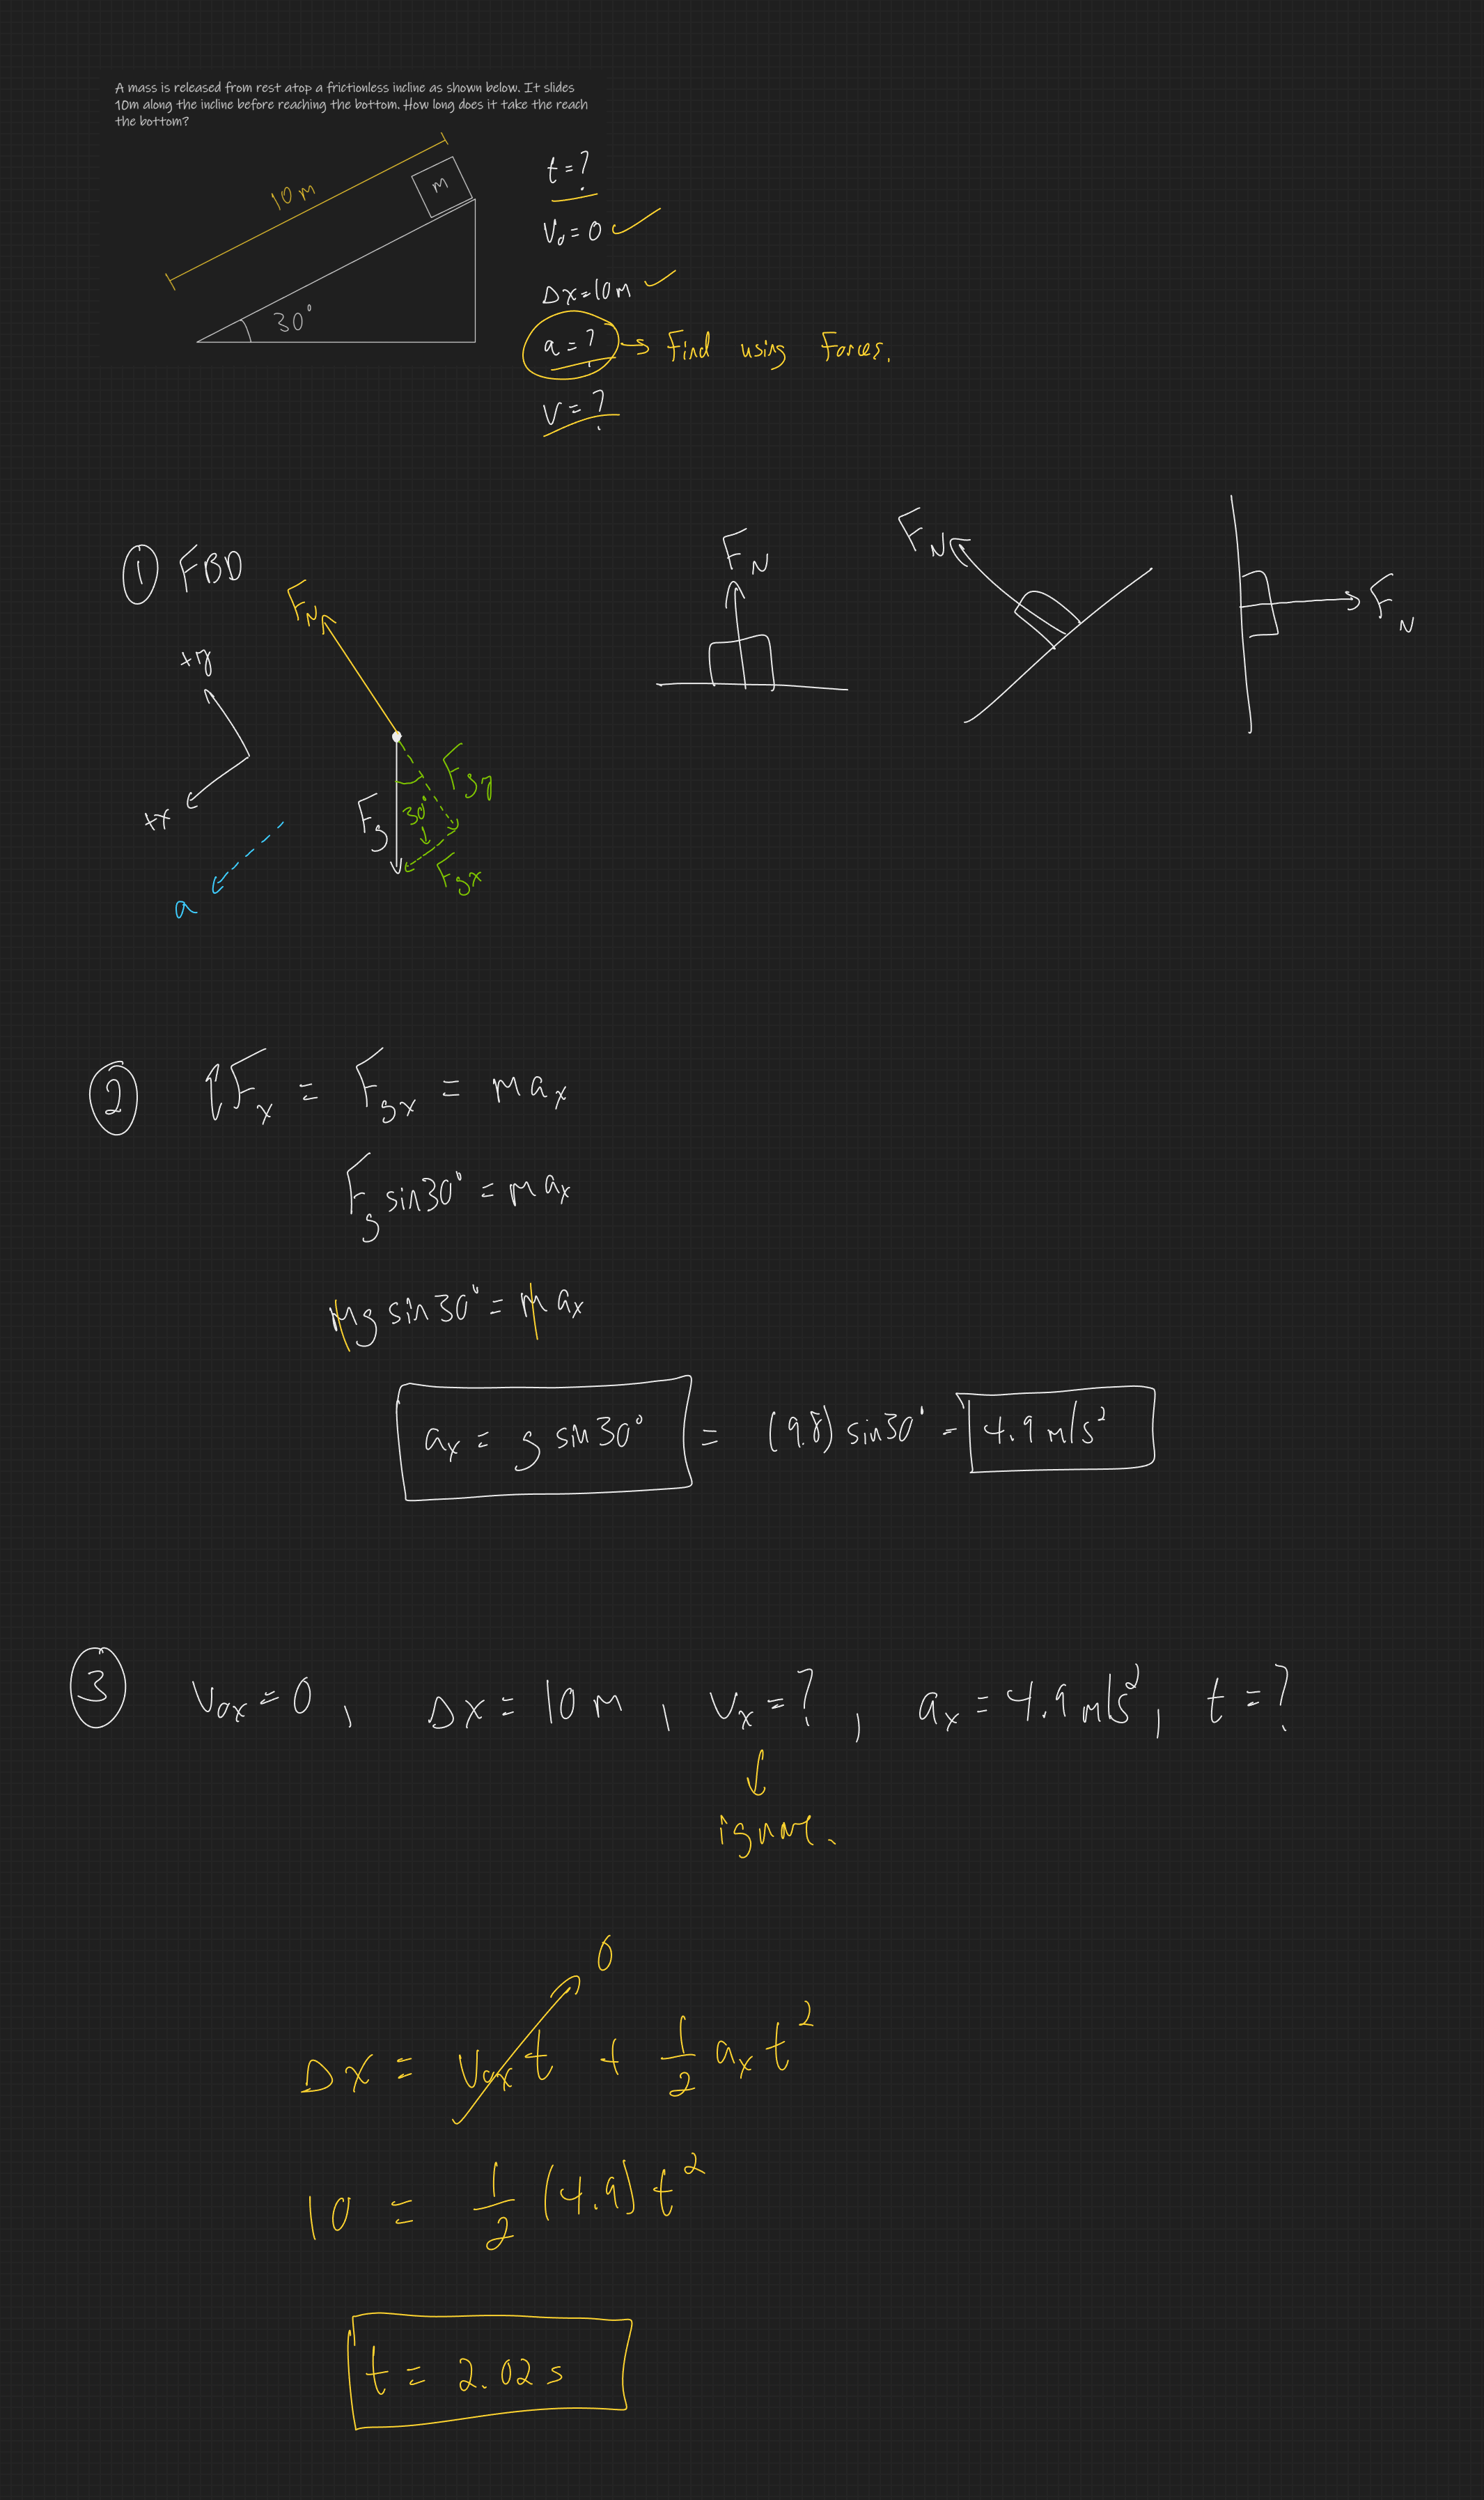 A mass is released from rest atop a frictionless incline as shown below. It slides
10m along the incline before reaching the bottom. How long does it take the reach
the bottom?
10 m
m
30°
t = ?
V₀ = 0 ✓
Δx = 10 m ✓
a = ? → Find using Forces.
V = ?
① FBD
F_N
+y
+x
a
F_g
30°
F_gy
F_gx
F_N
F_N
F_N
② ΣF_x = F_gx = m a_x
F_g sin30° = m a_x
mg sin30° = m a_x
a_x = g sin30° = (9.8) sin30° = 4.9 m/s²
③ V₀x = 0 , Δx = 10 m , V_x = ? , a_x = 4.9 m/s² , t = ?
↓
ignore.
0
Δx = V₀x t + 1/2 a_x t²
10 = 1/2 (4.9) t²
t = 2.02 s